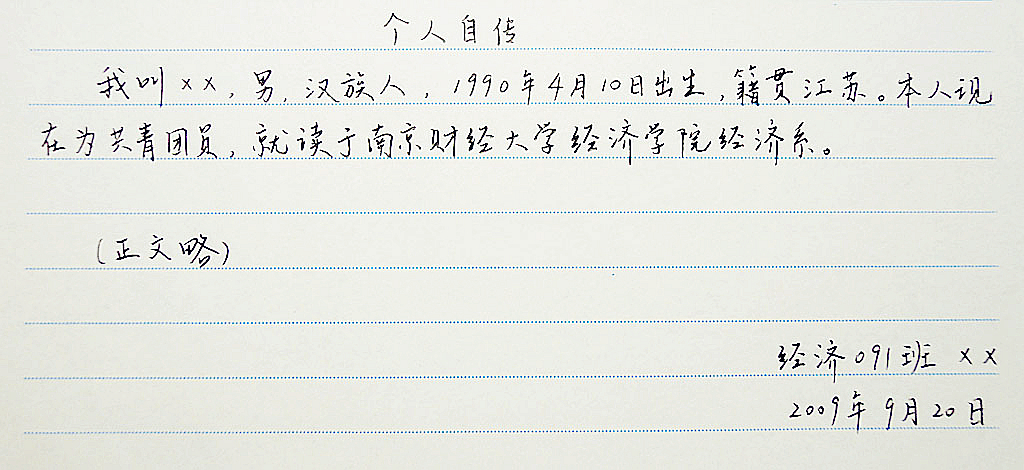 个人自传
我叫××，男，汉族人，1990年4月10日出生，籍贯江苏。本人现
在为共青团员，就读于南京财经大学经济学院经济系。
（正文略）
经济091班 ××
2009年9月20日